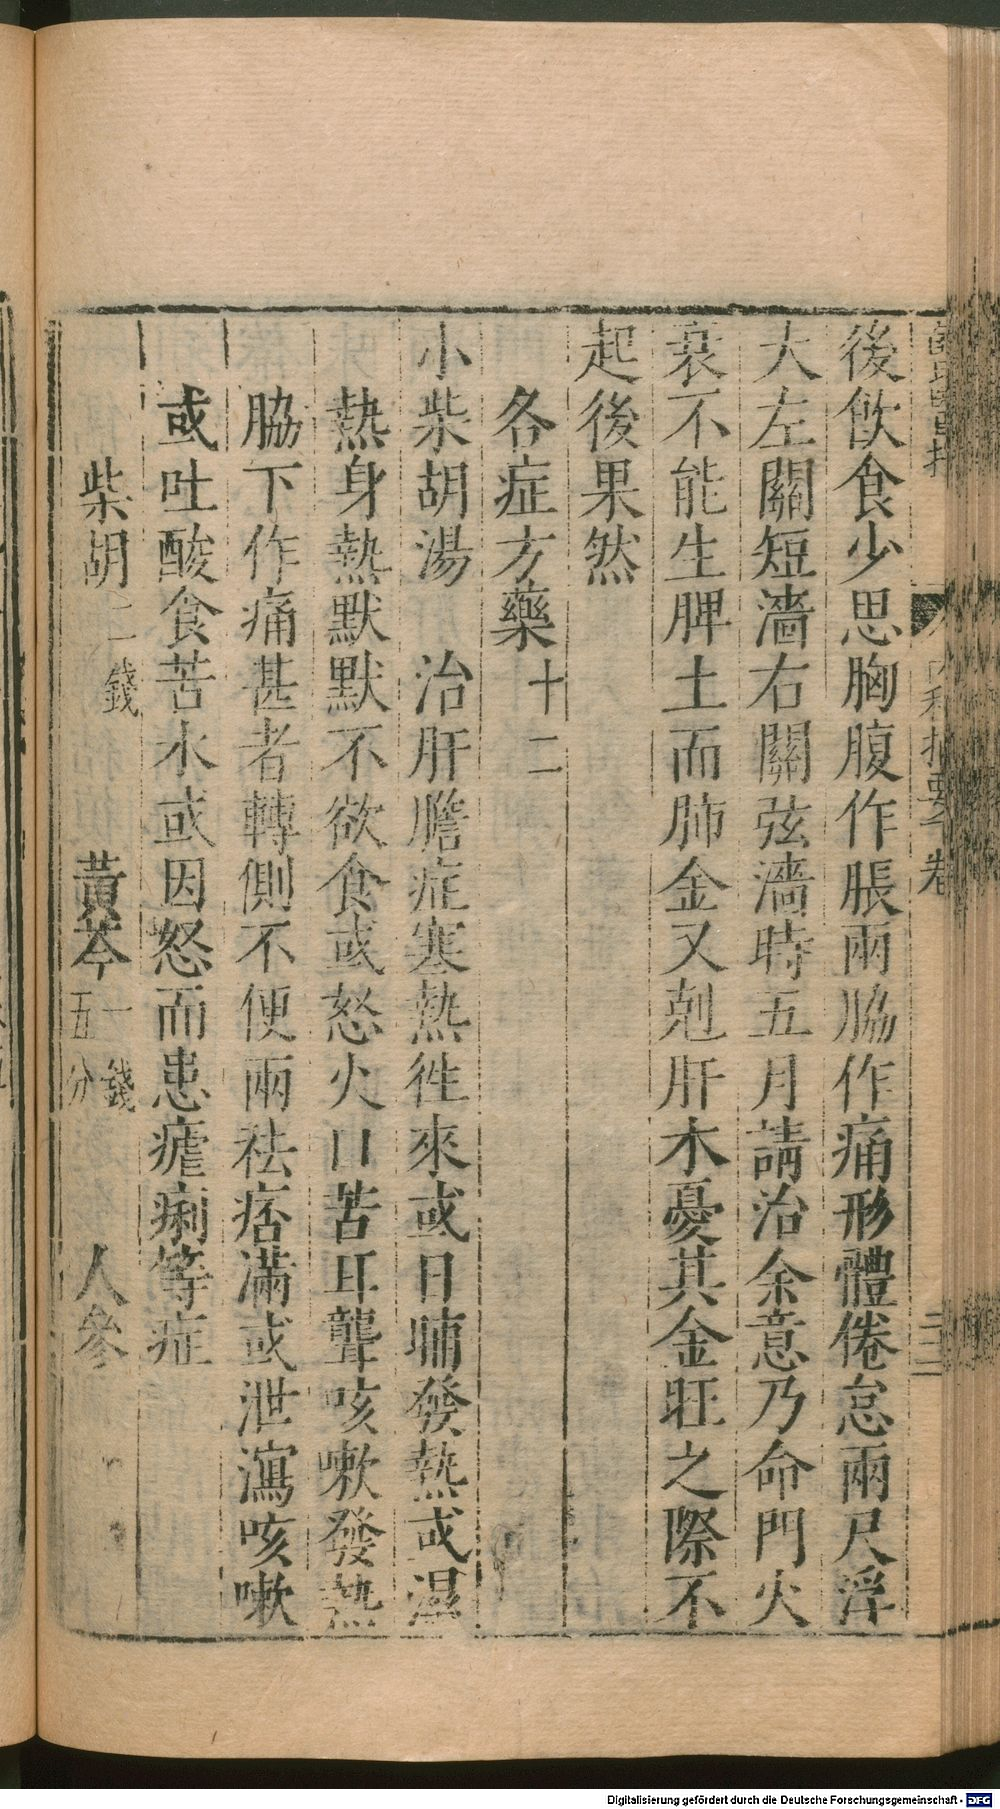 內科摘要 卷
後飲食少思胸腹作脹兩脇作痛形體倦怠兩尺浮
大左關短濇右關弦濇時五月請治余意乃命門火
衰不能生脾土而肺金又剋肝木憂其金旺之際不
起後果然
各症方藥十二
小柴胡湯 治肝膽症寒熱徃來或日晡發熱或濕
熱身熱默默不欲食或怒火口苦耳聾咳嗽發熱
脇下作痛甚者轉側不便兩袪痞滿或泄瀉咳嗽
或吐酸食苦水或因怒而患瘧痢等症
柴胡二錢 黃芩一錢五分 人參
Digitalisierung gefördert durch die Deutsche Forschungsgemeinschaft - DFG